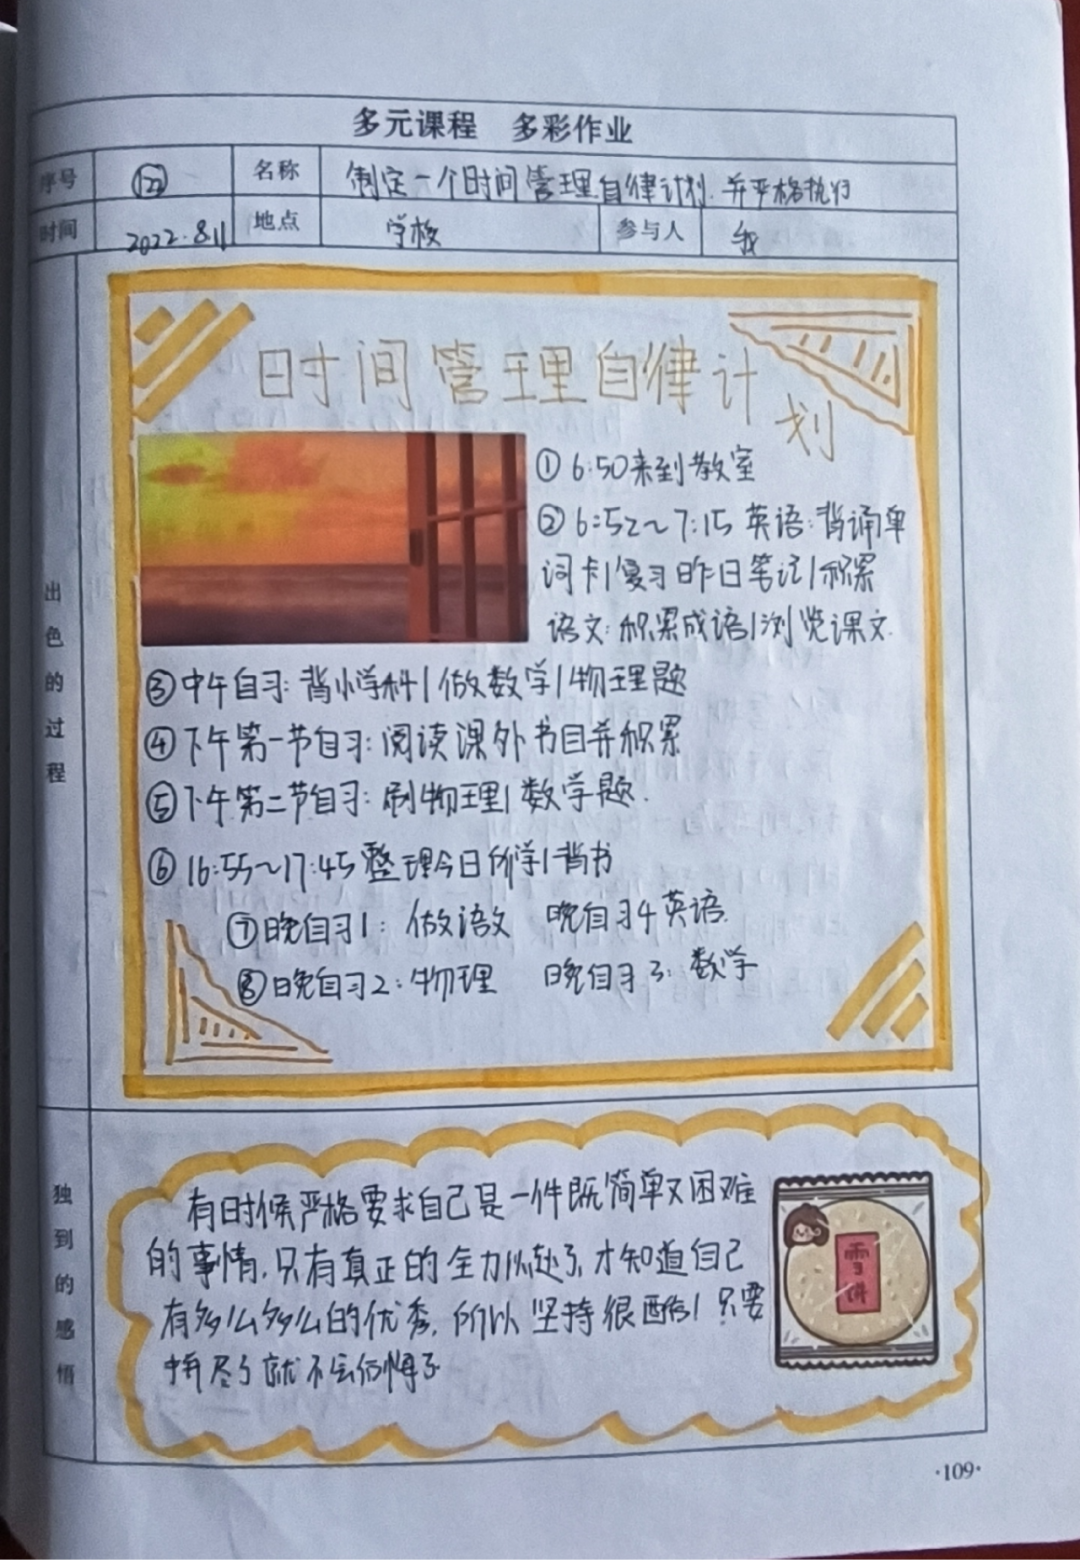 多元课程 多彩作业
序号 122 名称 制定一个时间管理自律计划.并严格执行
时间 2022.8.11 地点 学校 参与人 我
出色的过程
时间管理自律计划
①6:50来到教室
②6:52~7:15 英语:背诵单
词卡/复习昨日笔记/积累
语文:积累成语/浏览课文.
③中午自习:背小学科/做数学/物理题
④下午第一节自习:阅读课外书目并积累
⑤下午第二节自习:刷物理/数学题.
⑥16:55~17:45整理今日所学/背书
⑦晚自习1: 做语文 晚自习4英语.
⑧晚自习2:物理 晚自习3:数学
独到的感悟
有时候严格要求自己是一件既简单又困难
的事情,只有真正的全力以赴了,才知道自己
有多么多么的优秀,所以坚持很酷!只要
拼尽了就不会后悔了
雪饼
·109·